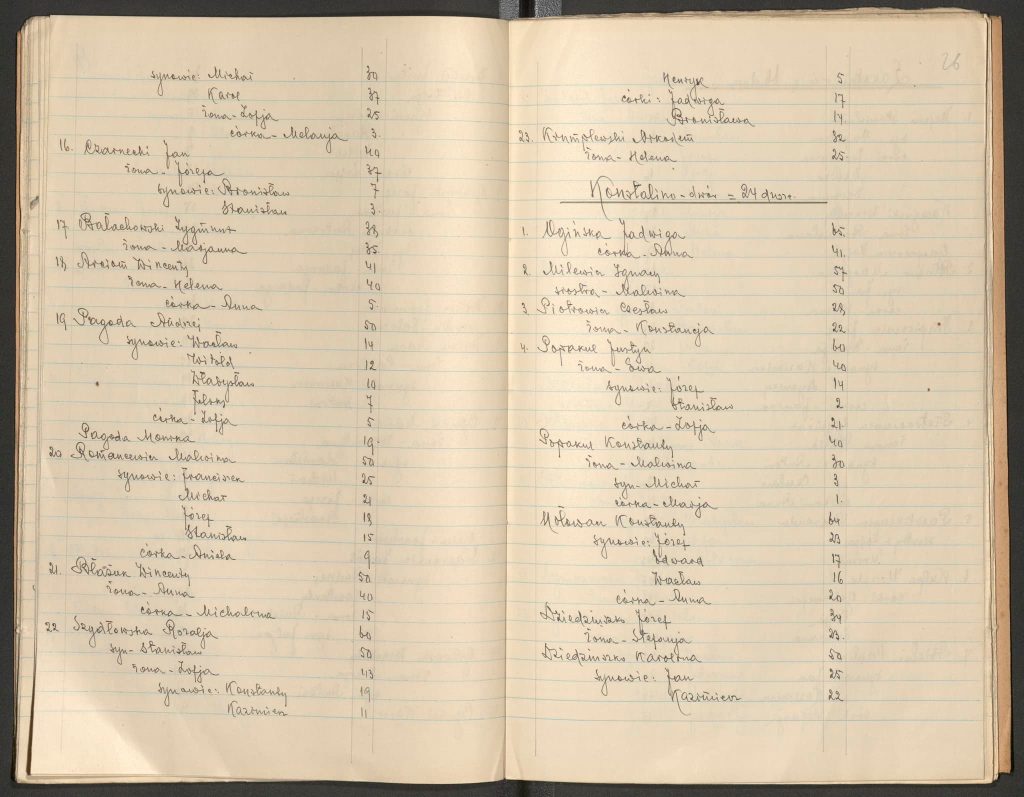 synowie: Michał 30
Karol 37
żona - Zofja 25
córka - Melanja 3.
16. Czarnecki Jan 40
żona - Józefa 37
synowie: Bronisław 7
Stanisław 3.
17. Bałachowski Zygmunt 38
żona - Marjanna 35.
18. Wincenty 41
żona - Helena 40
córka - Anna 5.
19. Pagoda Andrzej 50
synowie: Wacław 14
Witold 12
Władysław 10
Feliks 7
córka - Zofja 5
Pagoda Monika 19.
20. Romancewicz Malwina 50
synowie: Franciszek 25
Michał 21
Józef 18
Stanisław 15
córka - Aniela 9
21. Błażuk Wincenty 50
żona - Anna 40
córka - Michalina 15
22. Szydłowska Rozalja 60
syn - Stanisław 50
żona - Zofja 43
synowie: Konstanty 19
Kazimierz 11
26
Henryk 5
córki: Jadwiga 17
Bronisława 14
23. Arkadem 32
żona - Helena 25
Konstalino - dwór = 24 dusze.
1. Ogińska Jadwiga 65.
córka - Anna 41.
2. Milewicz Ignacy 57
siostra - Malwina 50
3. Piotrowicz Czesław 28
żona - Konstancja 22
4. Popakul Justyn 60
żona - Ewa 40
synowie: Józef 14
Stanisław 2
córka - Zofja 21
Popakul Konstanty 40
żona - Malwina 30
syn - Michał 3
córka - Marja 1.
Hołowan Konstanty 64
synowie: Józef 23
Edward 17
Wacław 16
córka - Anna 20
Dziedziuszko Józef 34
żona - Stefanja 23.
Dziedziuszko Karolina 50
synowie: Jan 25
Kazimierz 22